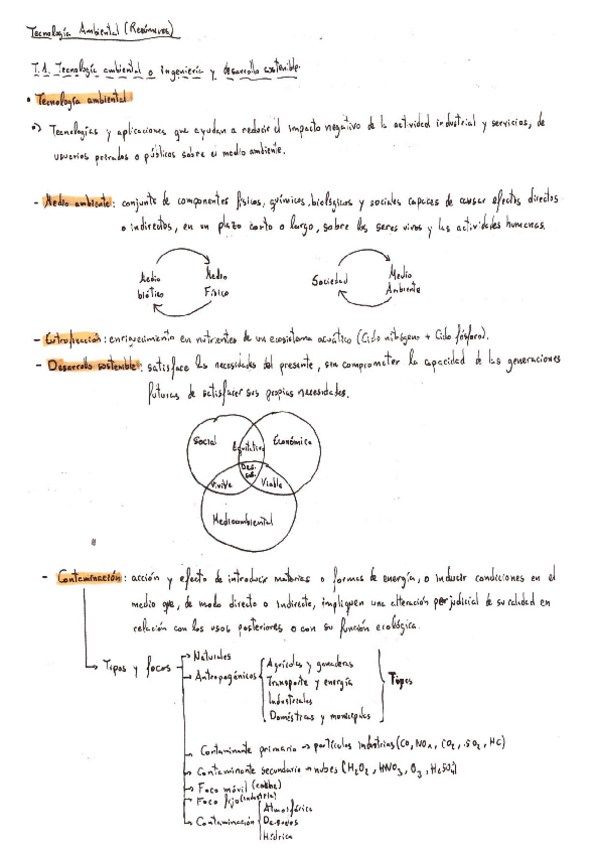 Tecnología Ambiental (Resúmenes)
T.1. Tecnología ambiental o ingeniería y desarrollo sostenible.
• Tecnología ambiental
Tecnologías y aplicaciones que ayudan a reducir el impacto negativo de la actividad industrial y servicios, de
usuarios privados o públicos sobre el medio ambiente.
- Medio ambiente: conjunto de componentes físicos, químicos, biológicos y sociales capaces de causar efectos directos
o indirectos, en un plazo corto o largo, sobre los seres vivos y las actividades humanas.
Medio biótico
Medio Físico
Sociedad
Medio Ambiente
- Eutrofización: enriquecimiento en nutrientes de un ecosistema acuático (Ciclo nitrógeno + Ciclo fósforo).
- Desarrollo sostenible: satisface las necesidades del presente, sin comprometer la capacidad de las generaciones
futuras de satisfacer sus propias necesidades.
Social
Equitativo
Económico
Des. sos.
Vivible
Viable
Medioambiental
- Contaminación: acción y efecto de introducir materias o formas de energía, o inducir condiciones en el
medio que, de modo directo o indirecto, impliquen una alteración perjudicial de su calidad en
relación con los usos posteriores o con su función ecológica.
Tipos y focos
Naturales
Antropogénicos
Agrícolas y ganaderas
Transporte y energía
Industriales
Domésticas y municipales
Tipos
Contaminante primario → partículas industrias (CO, NOx, CO2, SO2, HC)
Contaminante secundario → nubes (H2O2, HNO3, O3, H2SO4)
Foco móvil (coche)
Foco fijo (industria)
Contaminación
Atmosférica
De suelos
Hídrica